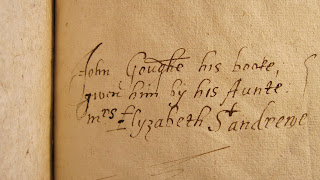 John Goughe his booke,
given him by his Aunte
mrs Elyzabeth St andrewe